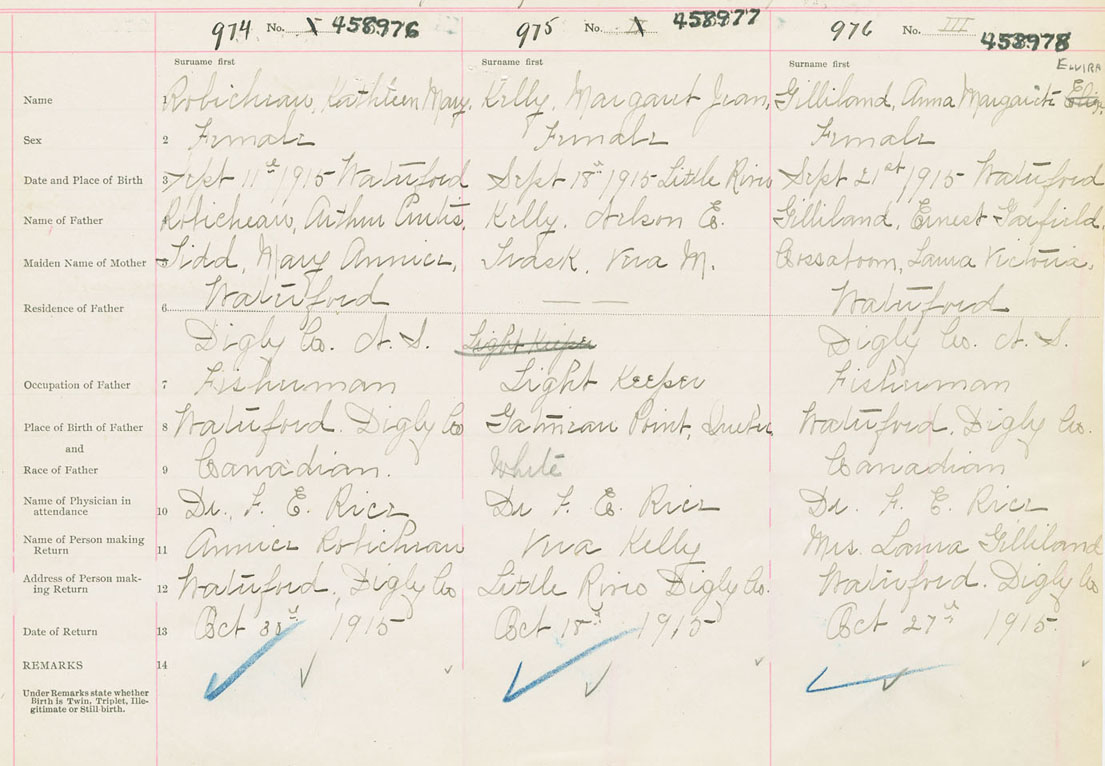 974 No. X 458976 975 No. X 458977 976 No. III 458978
Surname first Surname first Surname first ELVIRA
Name 1 Robicheau, Kathleen Mary, Kelly, Margaret Jean, Gilliland, Anna Margarite
Sex 2 Female Female Female
Date and Place of Birth 3 Sept 11th 1915 Waterford Sept 18th 1915 Little River Sept 21st 1915 Waterford
Name of Father 4 Robicheau, Arthur Curtis, Kelly, Nelson E. Gilliland, Ernest Garfield,
Maiden Name of Mother 5 Tidd, Mary Annice, Trask, Vera M. Cossaboom, Laura Victoria,
Residence of Father 6 Waterford — — Waterford
Digby Co. N. S. Light Keeper Digby Co. N. S.
Occupation of Father 7 Fisherman Light Keeper Fisherman
Place of Birth of Father 8 Waterford. Digby Co Gatineau Point, Quebec Waterford. Digby Co.
and
Race of Father 9 Canadian. White Canadian
Name of Physician in
attendance 10 Dr. F. E. Rice Dr F. E. Rice Dr. F. E. Rice
Name of Person making
Return 11 Annice Robicheau Vera Kelly Mrs. Laura Gilliland
Address of Person mak-
ing Return 12 Waterford, Digby Co Little River Digby Co. Waterford. Digby Co
Date of Return 13 Oct 1915 Oct 18th 1915 Oct 27th 1915.
REMARKS 14
Under Remarks state whether
Birth is Twin, Triplet, Ille-
gitimate or Still-birth.